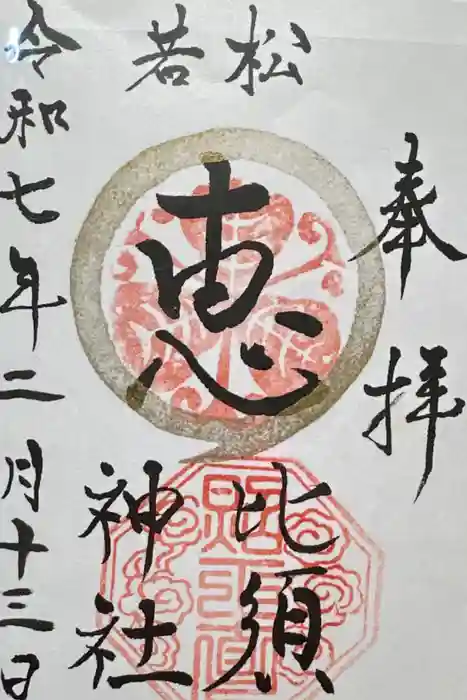 奉拝
松
若
恵
比須
神社
令和七年二月十三日